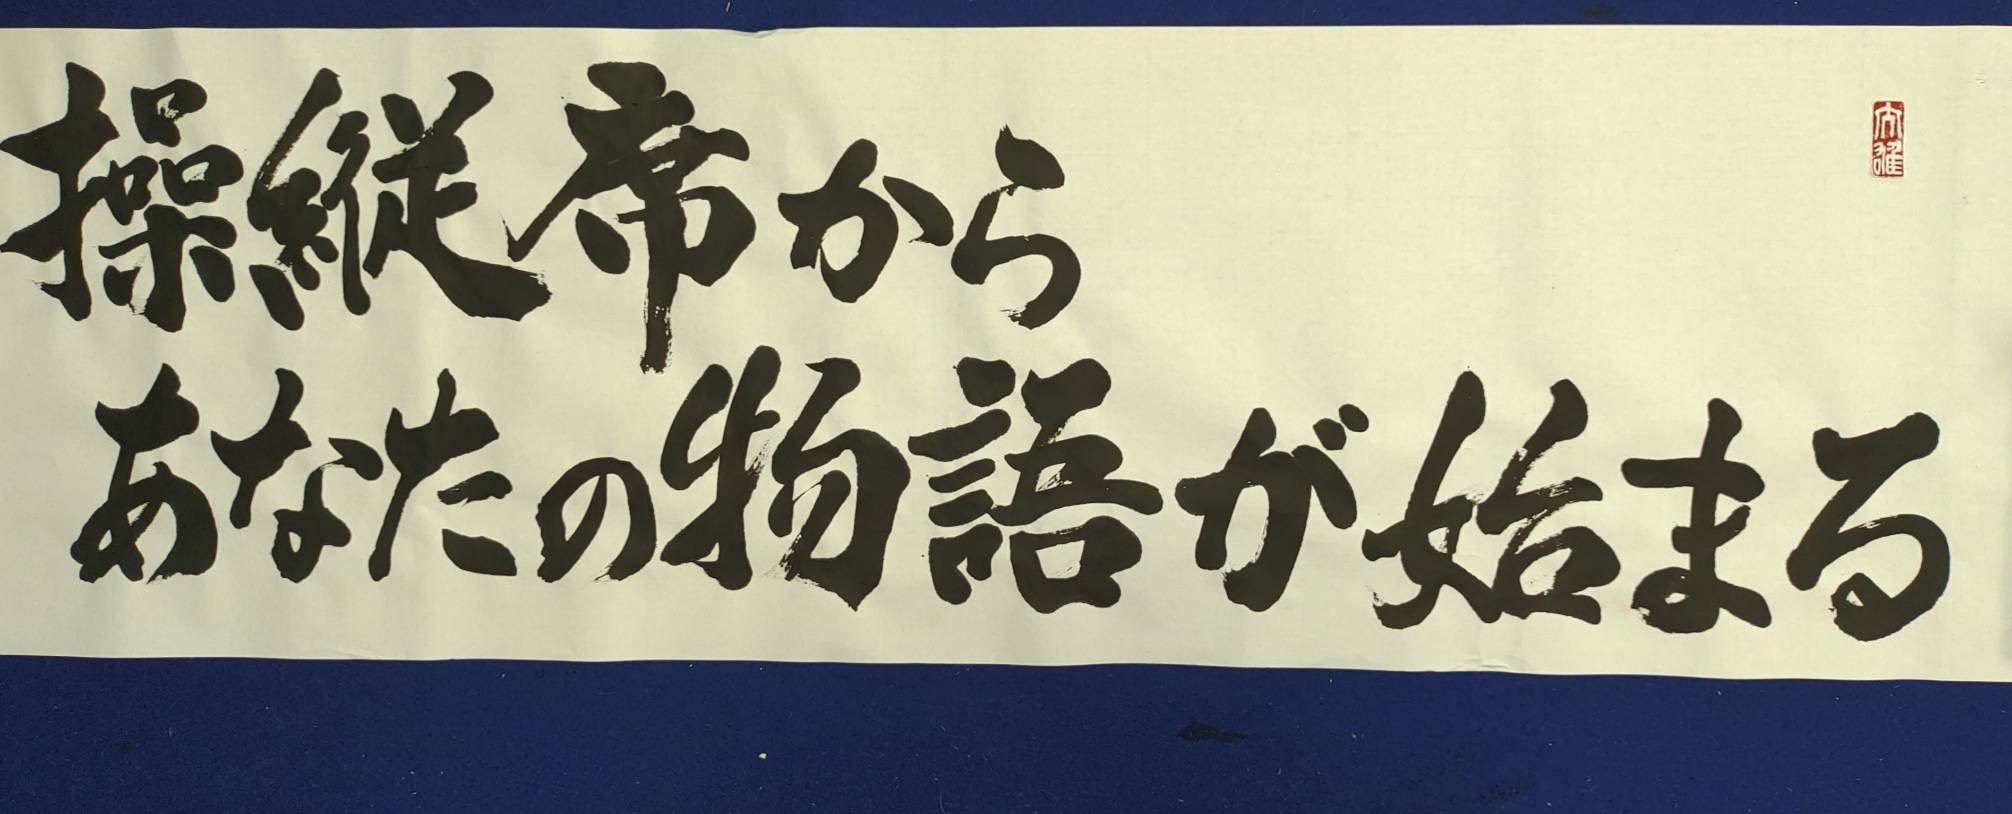 操縦席から
あなたの物語が始まる